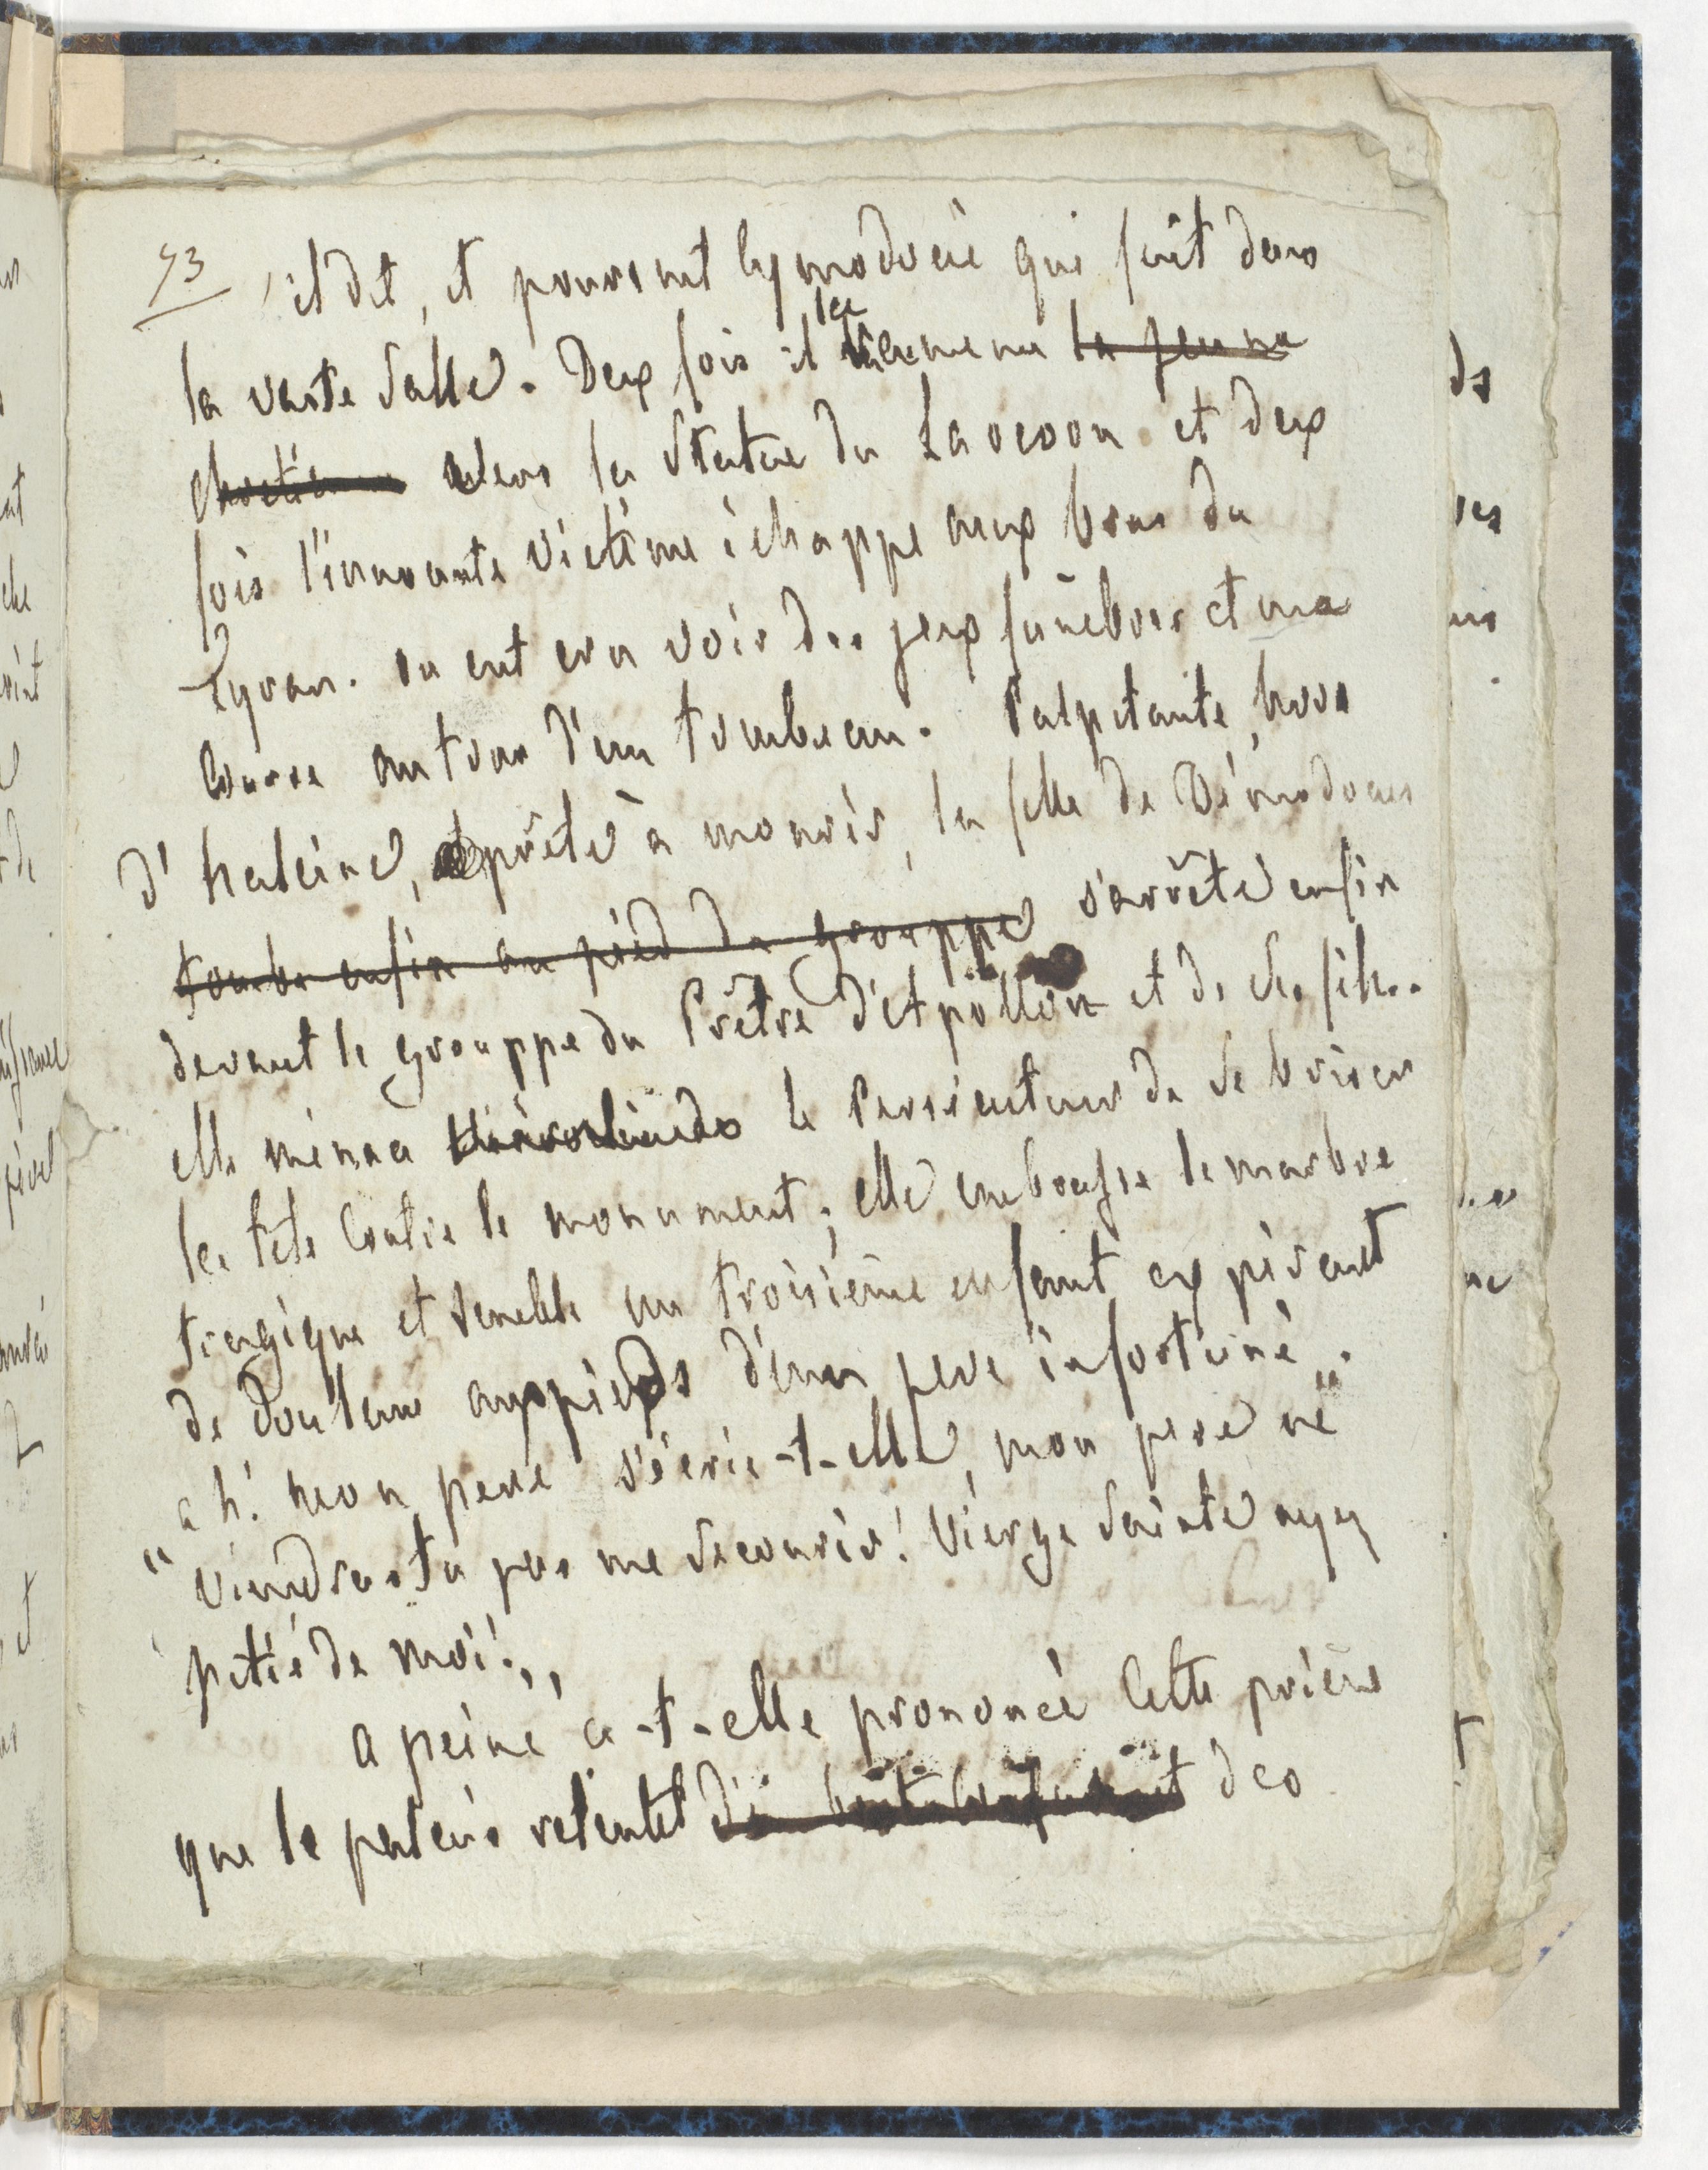 43 il dit, et poursuit Cymodocée qui fuit dans
la vaste Salle. Deux fois il la ramene la jeune
chretienne vers la Statue du Laocoon et deux
fois l'innocente victime échappe aux bras du
Tyran. on eut cru voir des jeux funèbres et une
Course autour d'un tombeau. Palpitante, hors
d'haleine, prête à mourir, la fille de Démodocus
tombe enfin au pied du grouppe s'arrête enfin
devant le grouppe du Prêtre d'Apollon et de ses fils.
elle menace Hiéroclès de le Persécuteur de se briser
la tête Contre le monument; elle embrasse le marbre
tragique et semble un troisième enfant expirant
de Douleur aux pieds d'un pere infortuné.
ah! mon pere s'écrie-t-elle, mon pere ne
" viendras-tu pas me secourir! Vierge Sainte ayez
pitié de moi! ,,
a peine a-t-elle prononcé Cette prière
que le palais retentit des